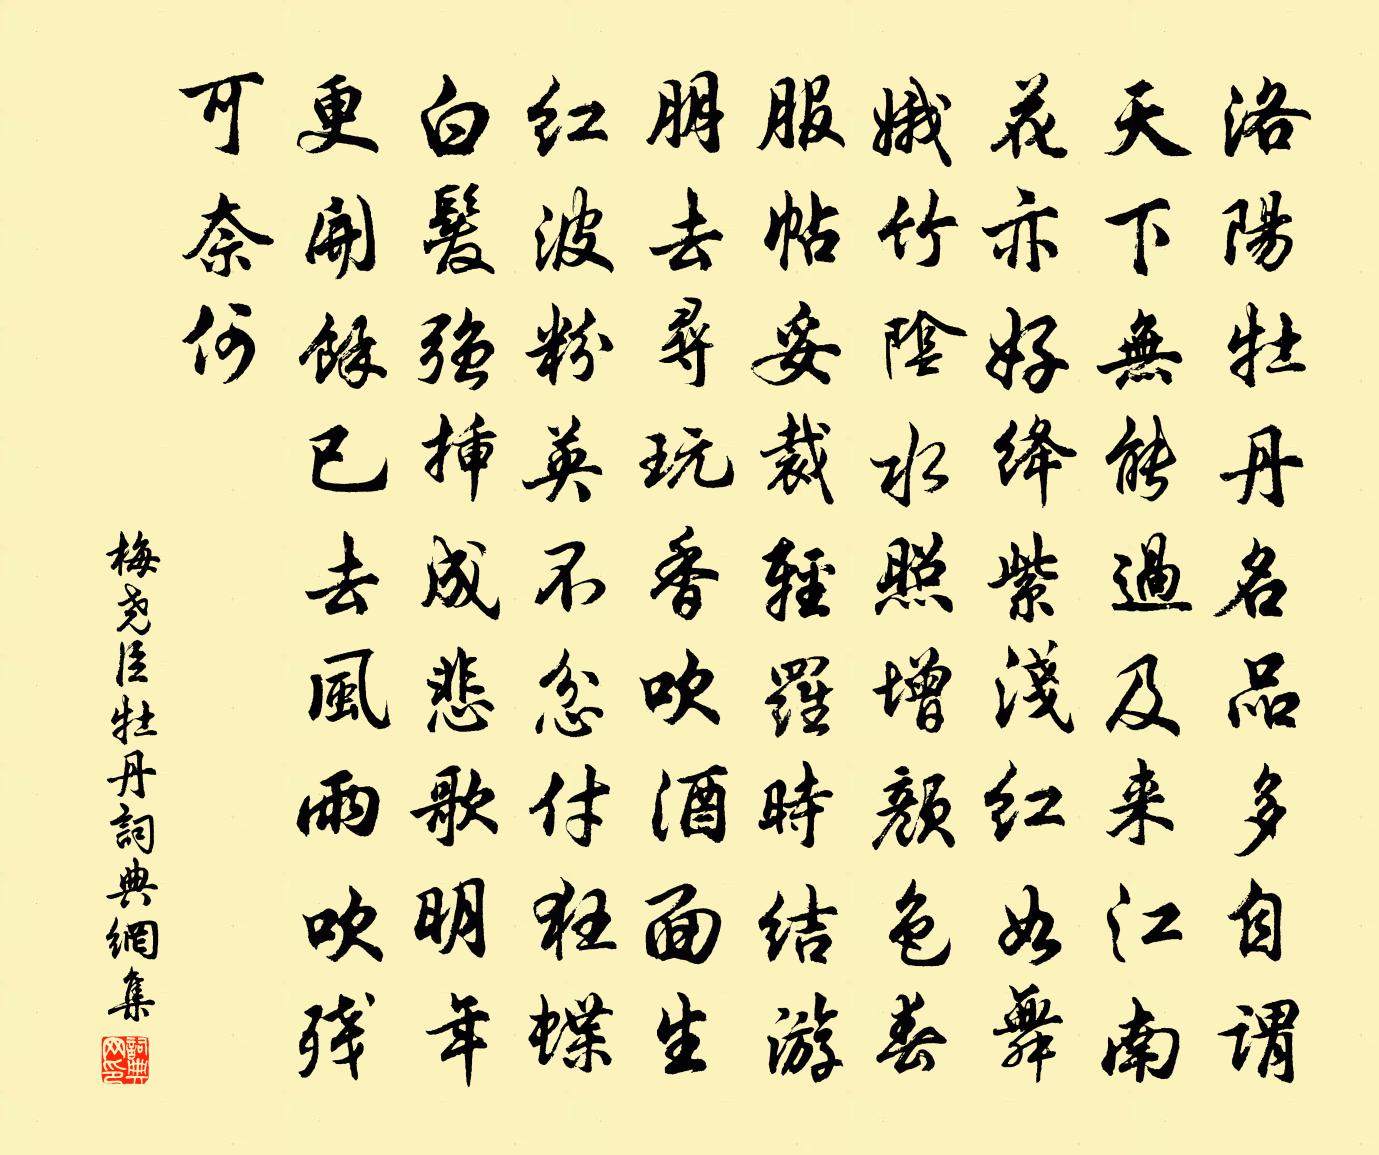 洛陽牡丹名品多自謂
天下無能過及来江南
花亦好絳紫淺紅如舞
娥竹陰水照增顏色春
服帖妥裁輕羅時結游
朋去尋玩香吹酒面生
紅波粉英不忿付狂蝶
白髮強插成悲歌明年
更開餘已去風雨吹残
可奈何
梅尧臣牡丹詞典網集
詞典网印